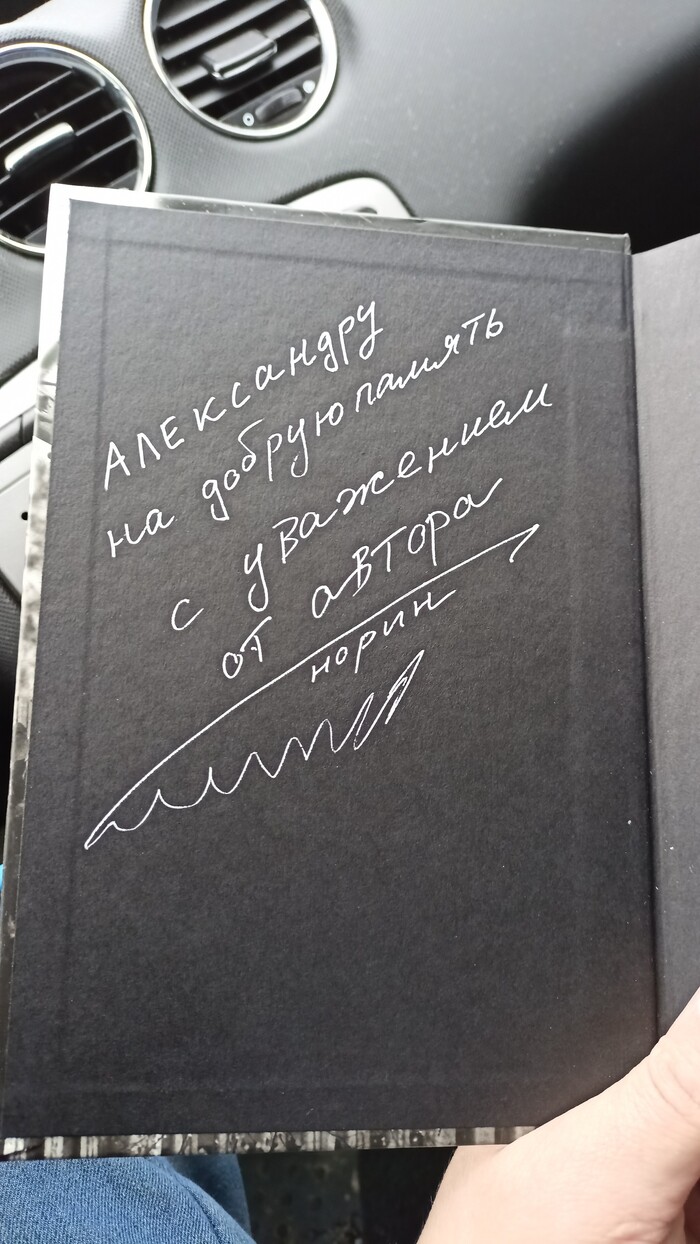 Александру
на добрую память
с уважением
от автора
норин